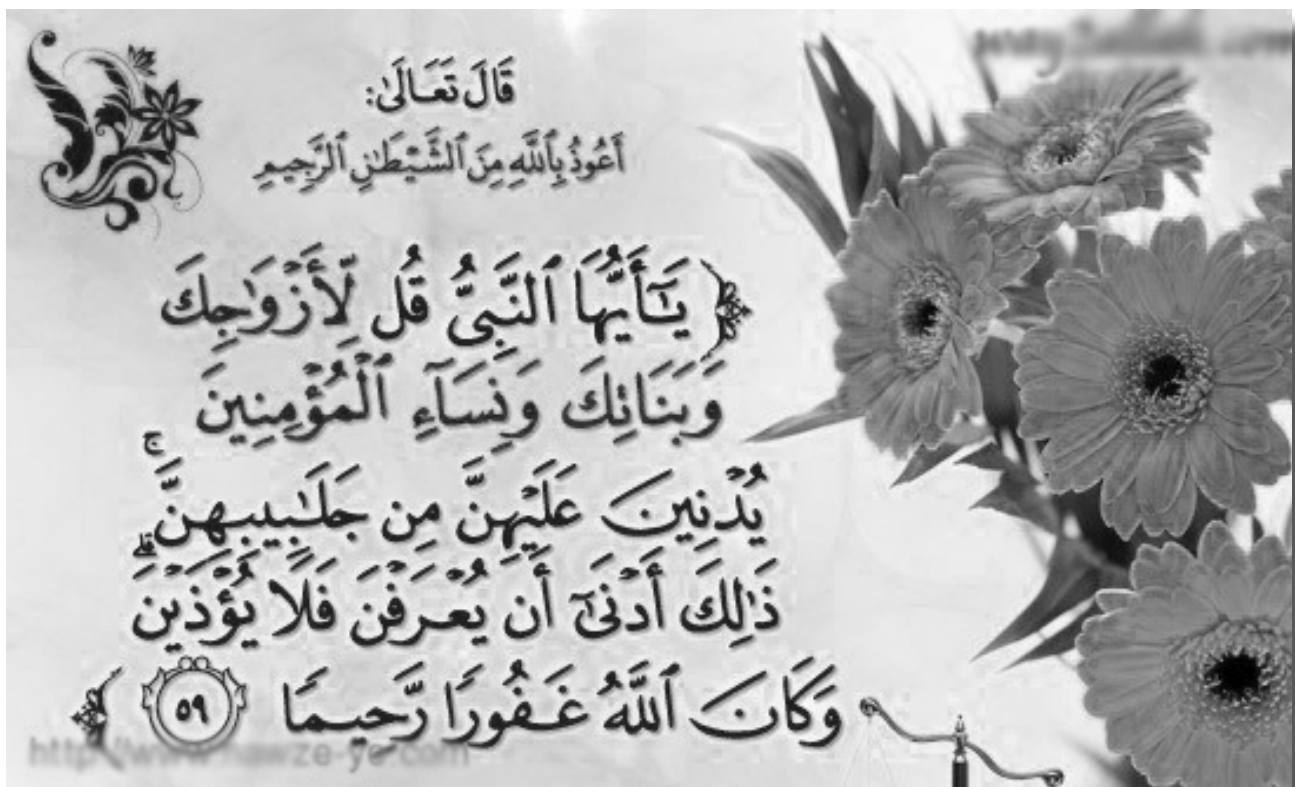 قَالَ تَعَالَىٰ:
أَعُوذُ بِٱللَّهِ مِنَ ٱلشَّيْطَٰنِ ٱلرَّجِيمِ
يَـٰٓأَيُّهَا ٱلنَّبِىُّ قُل لِّأَزْوَٰجِكَ
وَبَنَاتِكَ وَنِسَآءِ ٱلْمُؤْمِنِينَ
يُدْنِينَ عَلَيْهِنَّ مِن جَلَـٰبِيبِهِنَّ ۚ
ذَٰلِكَ أَدْنَىٰٓ أَن يُعْرَفْنَ فَلَا يُؤْذَيْنَ ۗ
وَكَانَ ٱللَّهُ غَفُورًا رَّحِيمًا ٥٩